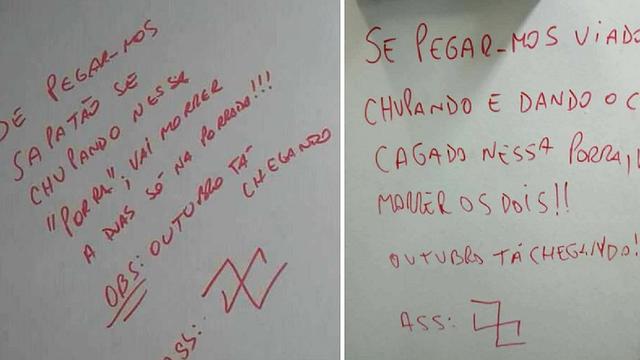 SE PEGAR-MOS
SAPATÃO SE
CHUPANDO NESSA
"PORRA", VAI MORRER
A DUAS SÓ NA PORRADA!!!
OBS: OUTUBRO TÁ
CHEGANDO
ASS:
SE PEGAR-MOS VIADO
CHUPANDO E DANDO O C
CAGADO NESSA PORRA,
MORRER OS DOIS!!
OUTUBRO TÁ CHEGANDO!
ASS: